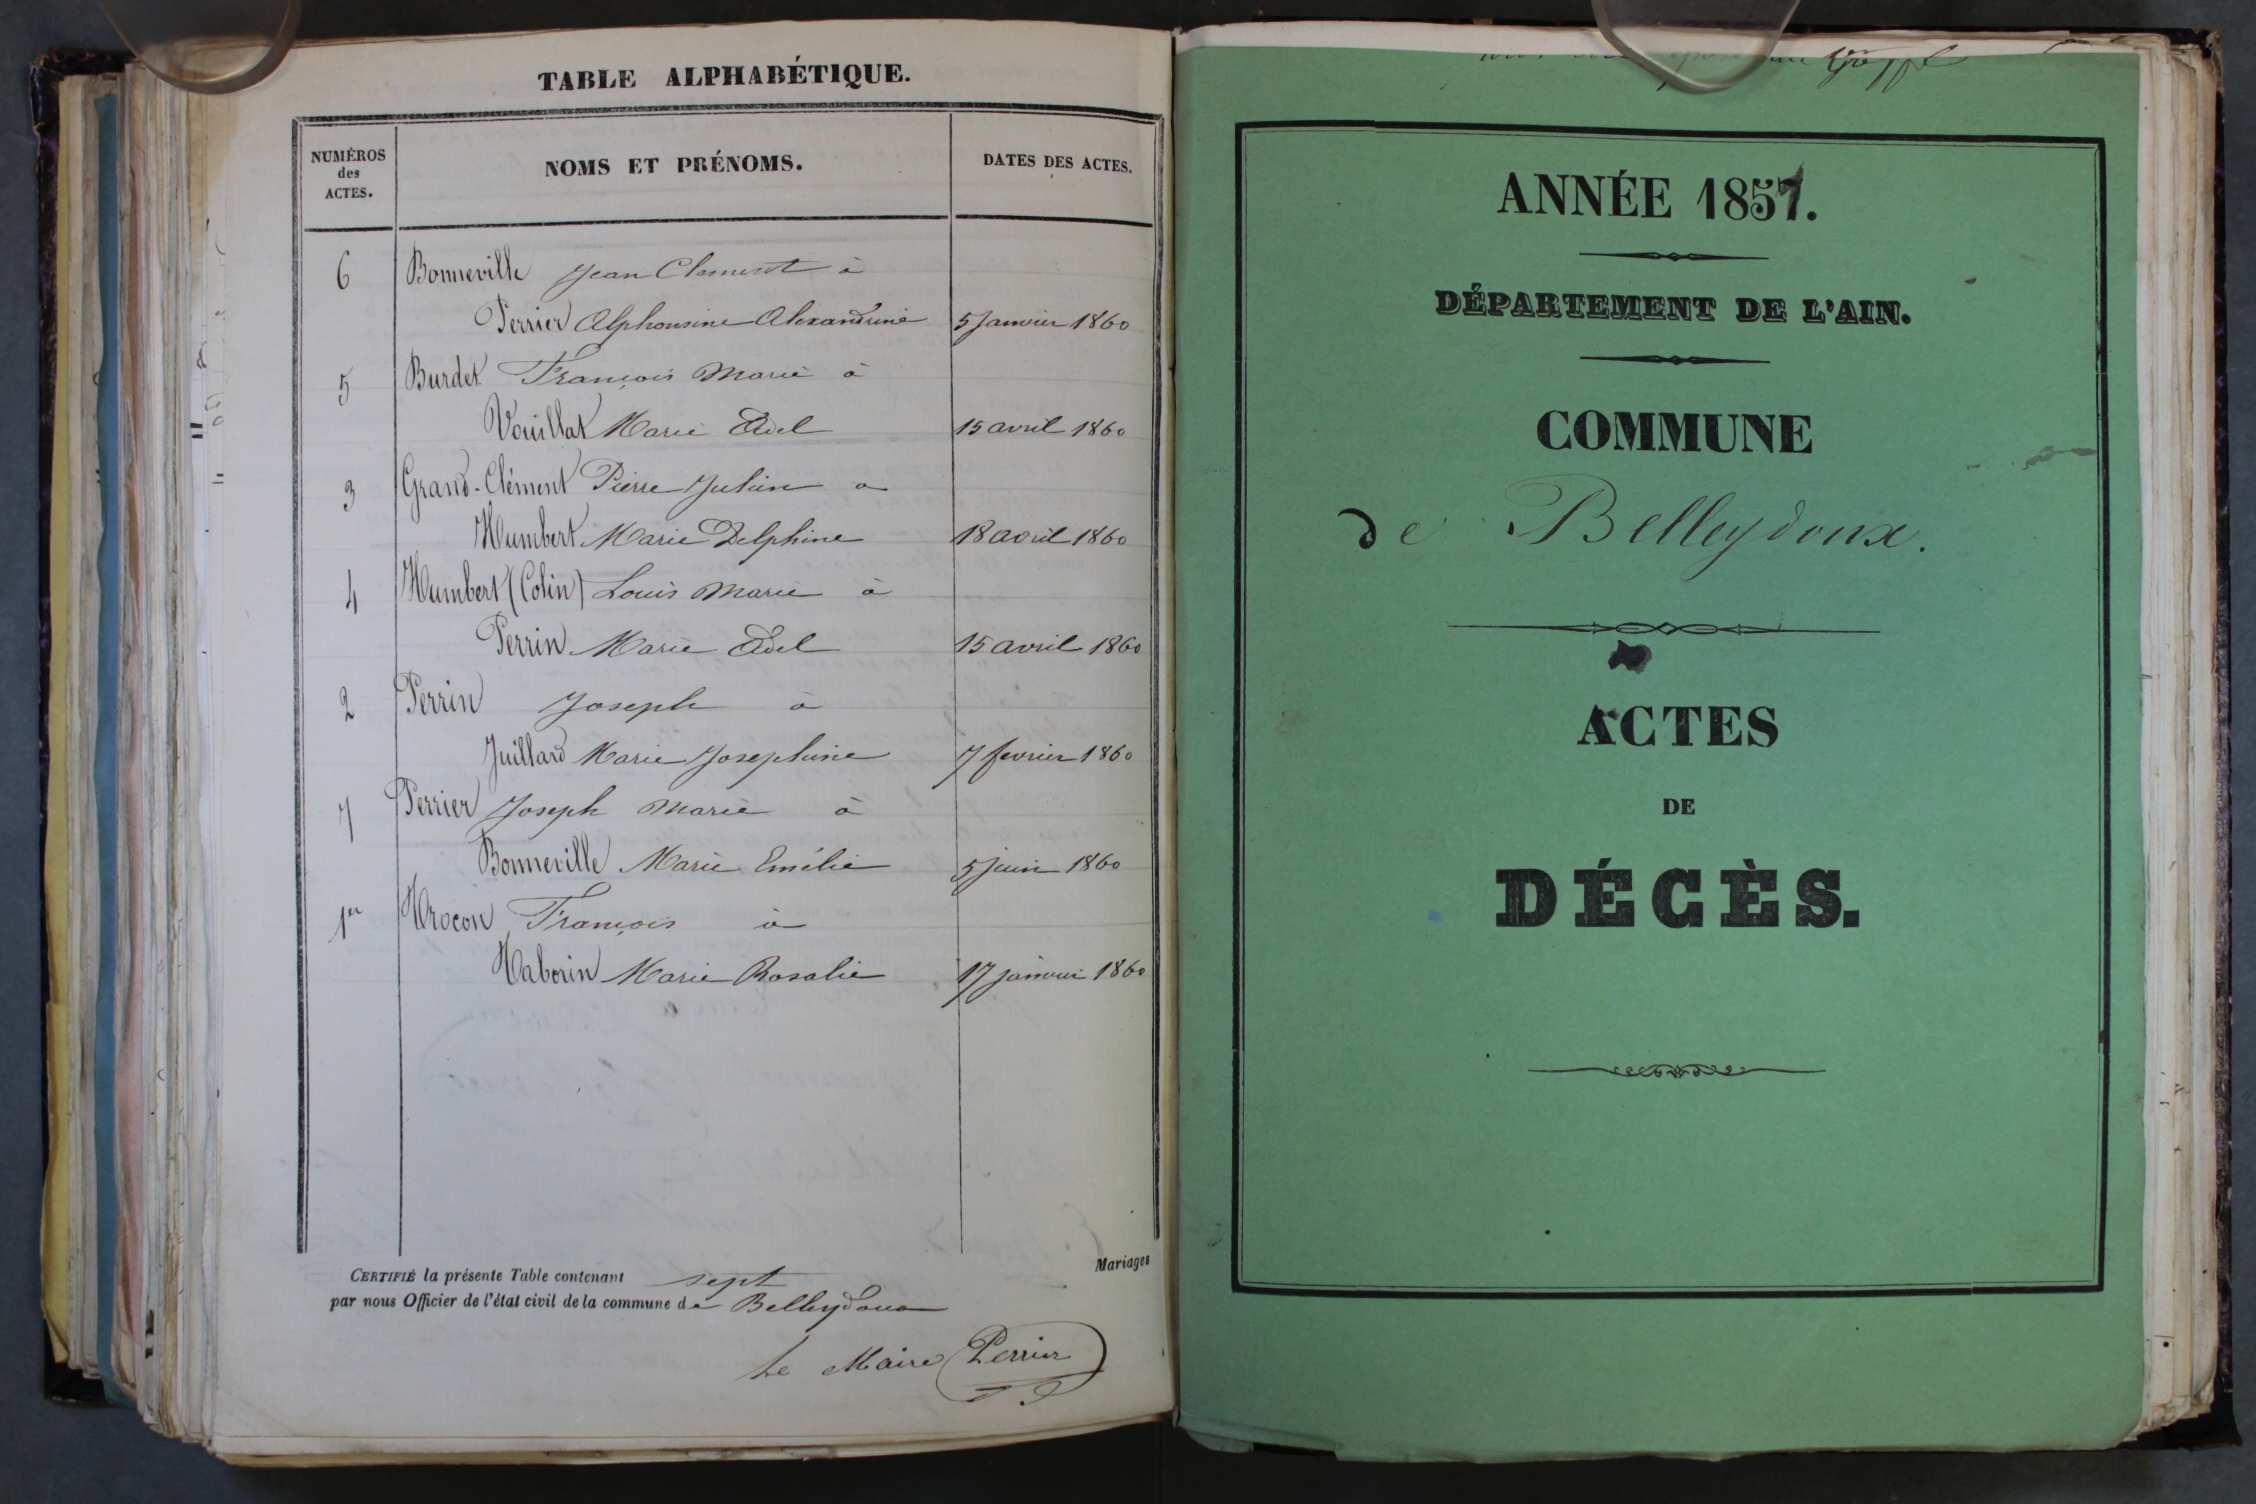 TABLE ALPHABÉTIQUE.
NUMÉROS
des
ACTES.
NOMS ET PRÉNOMS.
DATES DES ACTES.
6 Bonneville Jean Clement à
Perrier Alphonsine Alexandrine 5 Janvier 1860
5 Burdet François Marie à
Vouillat Marie Adel 15 avril 1860
3 Grand-Clément Pierre Julien a
Humbert Marie Delphine 18 avril 1860
4 Humbert (Colin) Louis Marie à
Perrin Marie Adel 15 avril 1860
2 Perrin Joseph à
Juillard Marie Josephine 7 fevrier 1860
7 Perrier Joseph Marie à
Bonneville Marie Emélie 5 juin 1860
1er François à
Marie Rosalie 17 janvier 1860
Mariages
CERTIFIÉ la présente Table contenant sept
par nous Officier de l'état civil de la commune de Belleydoux
Le Maire Perrier
ANNÉE 1857.
DÉPARTEMENT DE L'AIN.
COMMUNE
de Belleydoux.
ACTES
DE
DÉCÈS.